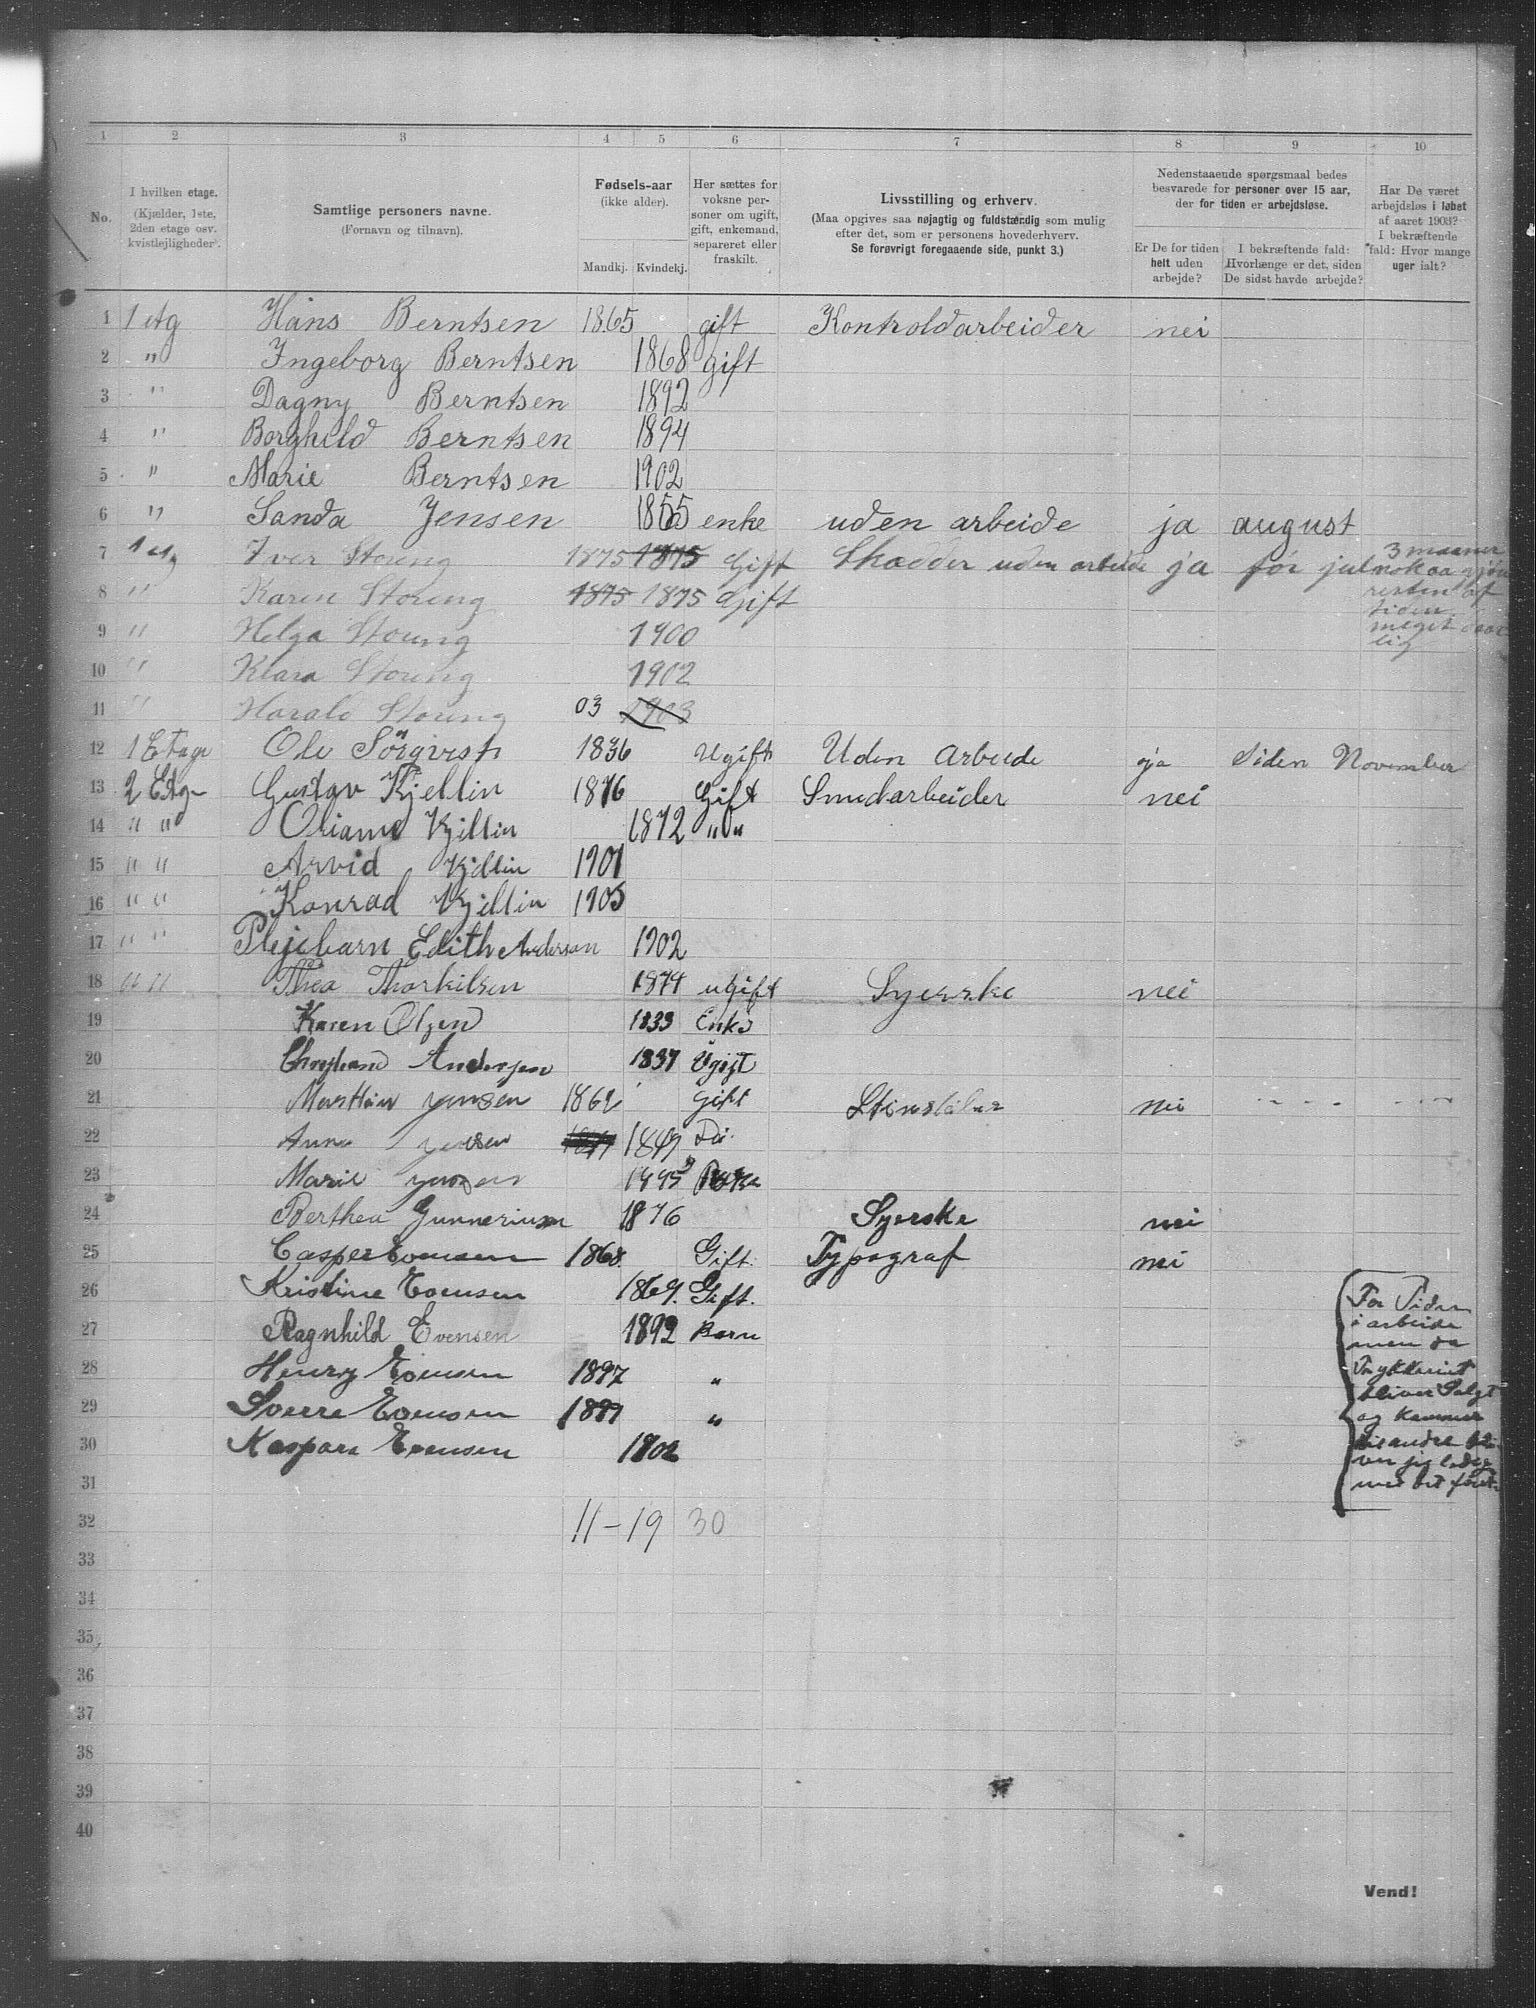 1 2 3 4 5 6 7 8 9 10
No.
I hvilken etage.
(Kjælder, 1ste, 2den etage osv. kvistlejligheder).
Samtlige personers navne.
(Fornavn og tilnavn).
Fødsels-aar
(ikke alder).
Mandkj. Kvindekj.
Her sættes for voksne personer om ugift, gift, enkemand, separeret eller fraskilt.
Livsstilling og erhverv.
(Maa opgives saa nøjagtig og fuldstærdig som mulig efter det, som er personens hovederhverv.
Se forøvrigt foregaaende side, punkt 3.)
Nedenstaaende spørgsmaal bedes besvarede for personer over 15 aar, der for tiden er arbejdsløse.
Er De for tiden helt uden arbejde?
I bekræftende fald: Hvorlænge er det, siden De sidst havde arbejde?
Har De været arbejdsløs i løbet af aaret 1903? I bekræftende fald: Hvor mange uger ialt?
1 1 etg Hans Berntsen 1865 gift Kontroldarbeider nei
2 " Ingeborg Berntsen 1868 gift
3 " Dagny Berntsen 1892
4 " Borghild Berntsen 1894
5 " Marie Berntsen 1902
6 " Sanda Jensen 1855 enke uden arbeide ja august
7 1 etg Iver Stoung 1875 1875 Gift Skrædder uden arbeide ja før jul 3 maaner nok aa gjøre resten af tiden meget daarlig
8 " Karen Stoung 1875 1875 Gift
9 " Helga Stoung 1900
10 " Klara Stoung 1902
11 " Harald Stoung 03 1903
12 1 Etage Ole Sörqvist 1836 Ugift Uden Arbeide ja Siden November
13 2 Etg Gustav Kjellin 1876 Gift Smedarbeider nei
14 " " Oliane Kjellin 1872 " "
15 " " Arvid Kjellin 1901
16 " " Konrad Kjellin 1903
17 " " Plejebarn Edith Anderson 1902
18 " " Thea Thorkilsen 1874 ugift Syerske nei
19 Karen Olsen 1833 Enke
20 Andersen 1837 Ugift
21 Jensen 1862 Gift nei
22 Anna Jensen 1847 Do.
23 Marie Jensen
24 Berthea Gunneriusen 1876 Syerske nei
25 Casper Evensen 1868. Gift. Typograf nei
26 Kristine Evensen 1869. Gift.
27 Ragnhild Evensen 1892 Barn
28 Henry Evensen 1897 "
29 Sverre Evensen 1899 "
30 Kaspara Evensen 1902
For Tiden
i arbeide
men da
Trykkeriet
bliver Solgt
og kommer
til andre bli
ver jeg ledig
med det først
31
32 11-19 30
33
34
35
36
37
38
39
40
Vend!